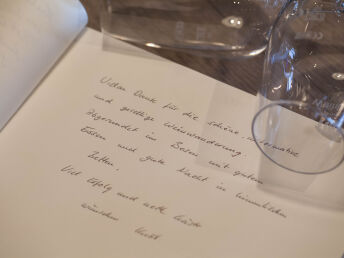 Vielen Dank für die schöne, informative
und gesellige Weinwanderung.
Abgerundet im Beisen mit gutem
Essen und gute Nacht in himmlischen
Betten.
Viel Erfolg und nette Gäste
wünschen